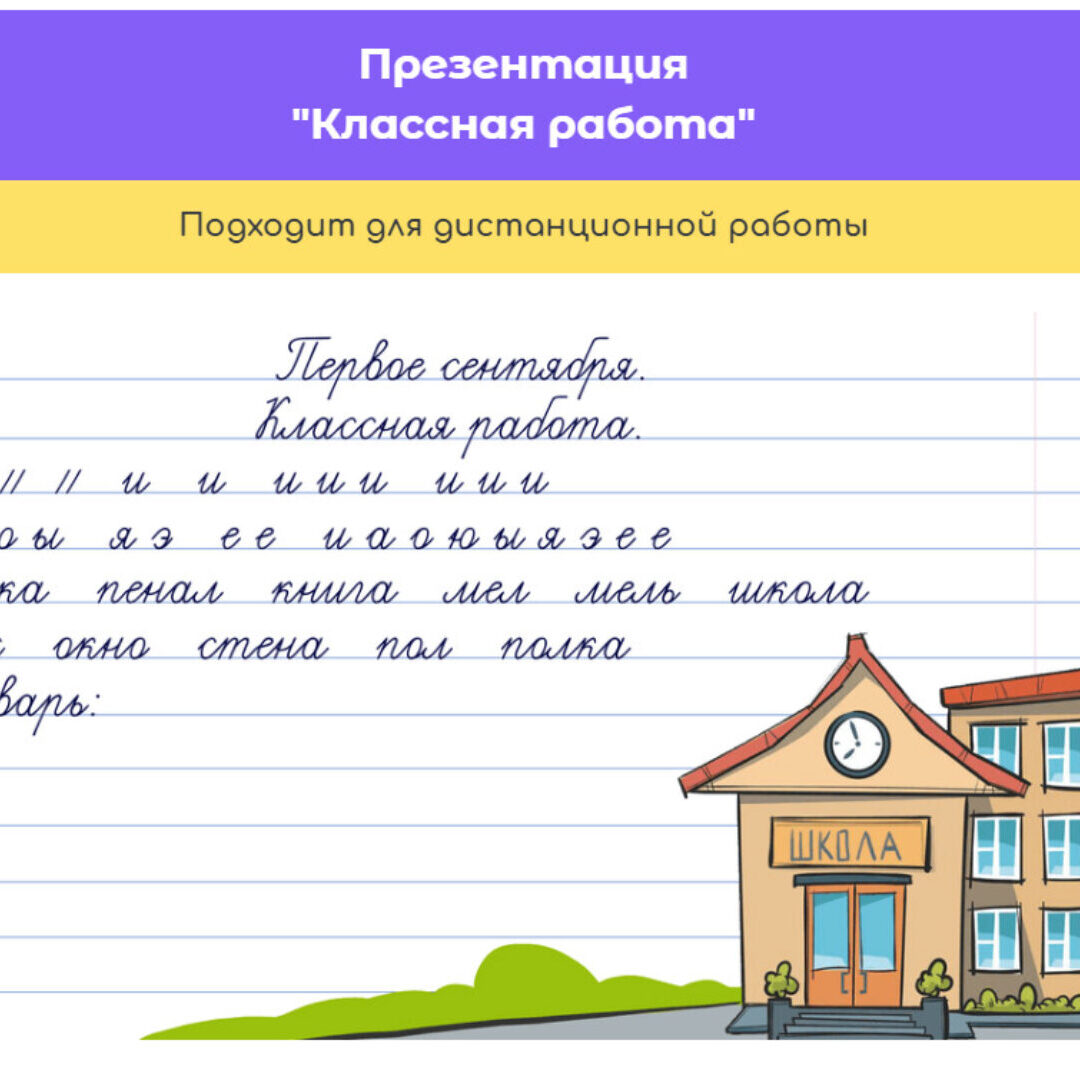 Презентация
"Классная работа"
Подходит для дистанционной работы
Первое сентября.
Классная работа.
// // и и и и и и и и
ы я э е е и а о ю ы я э е е
пенал книга мел мель школа
окно стена пол полка
ШКОЛА